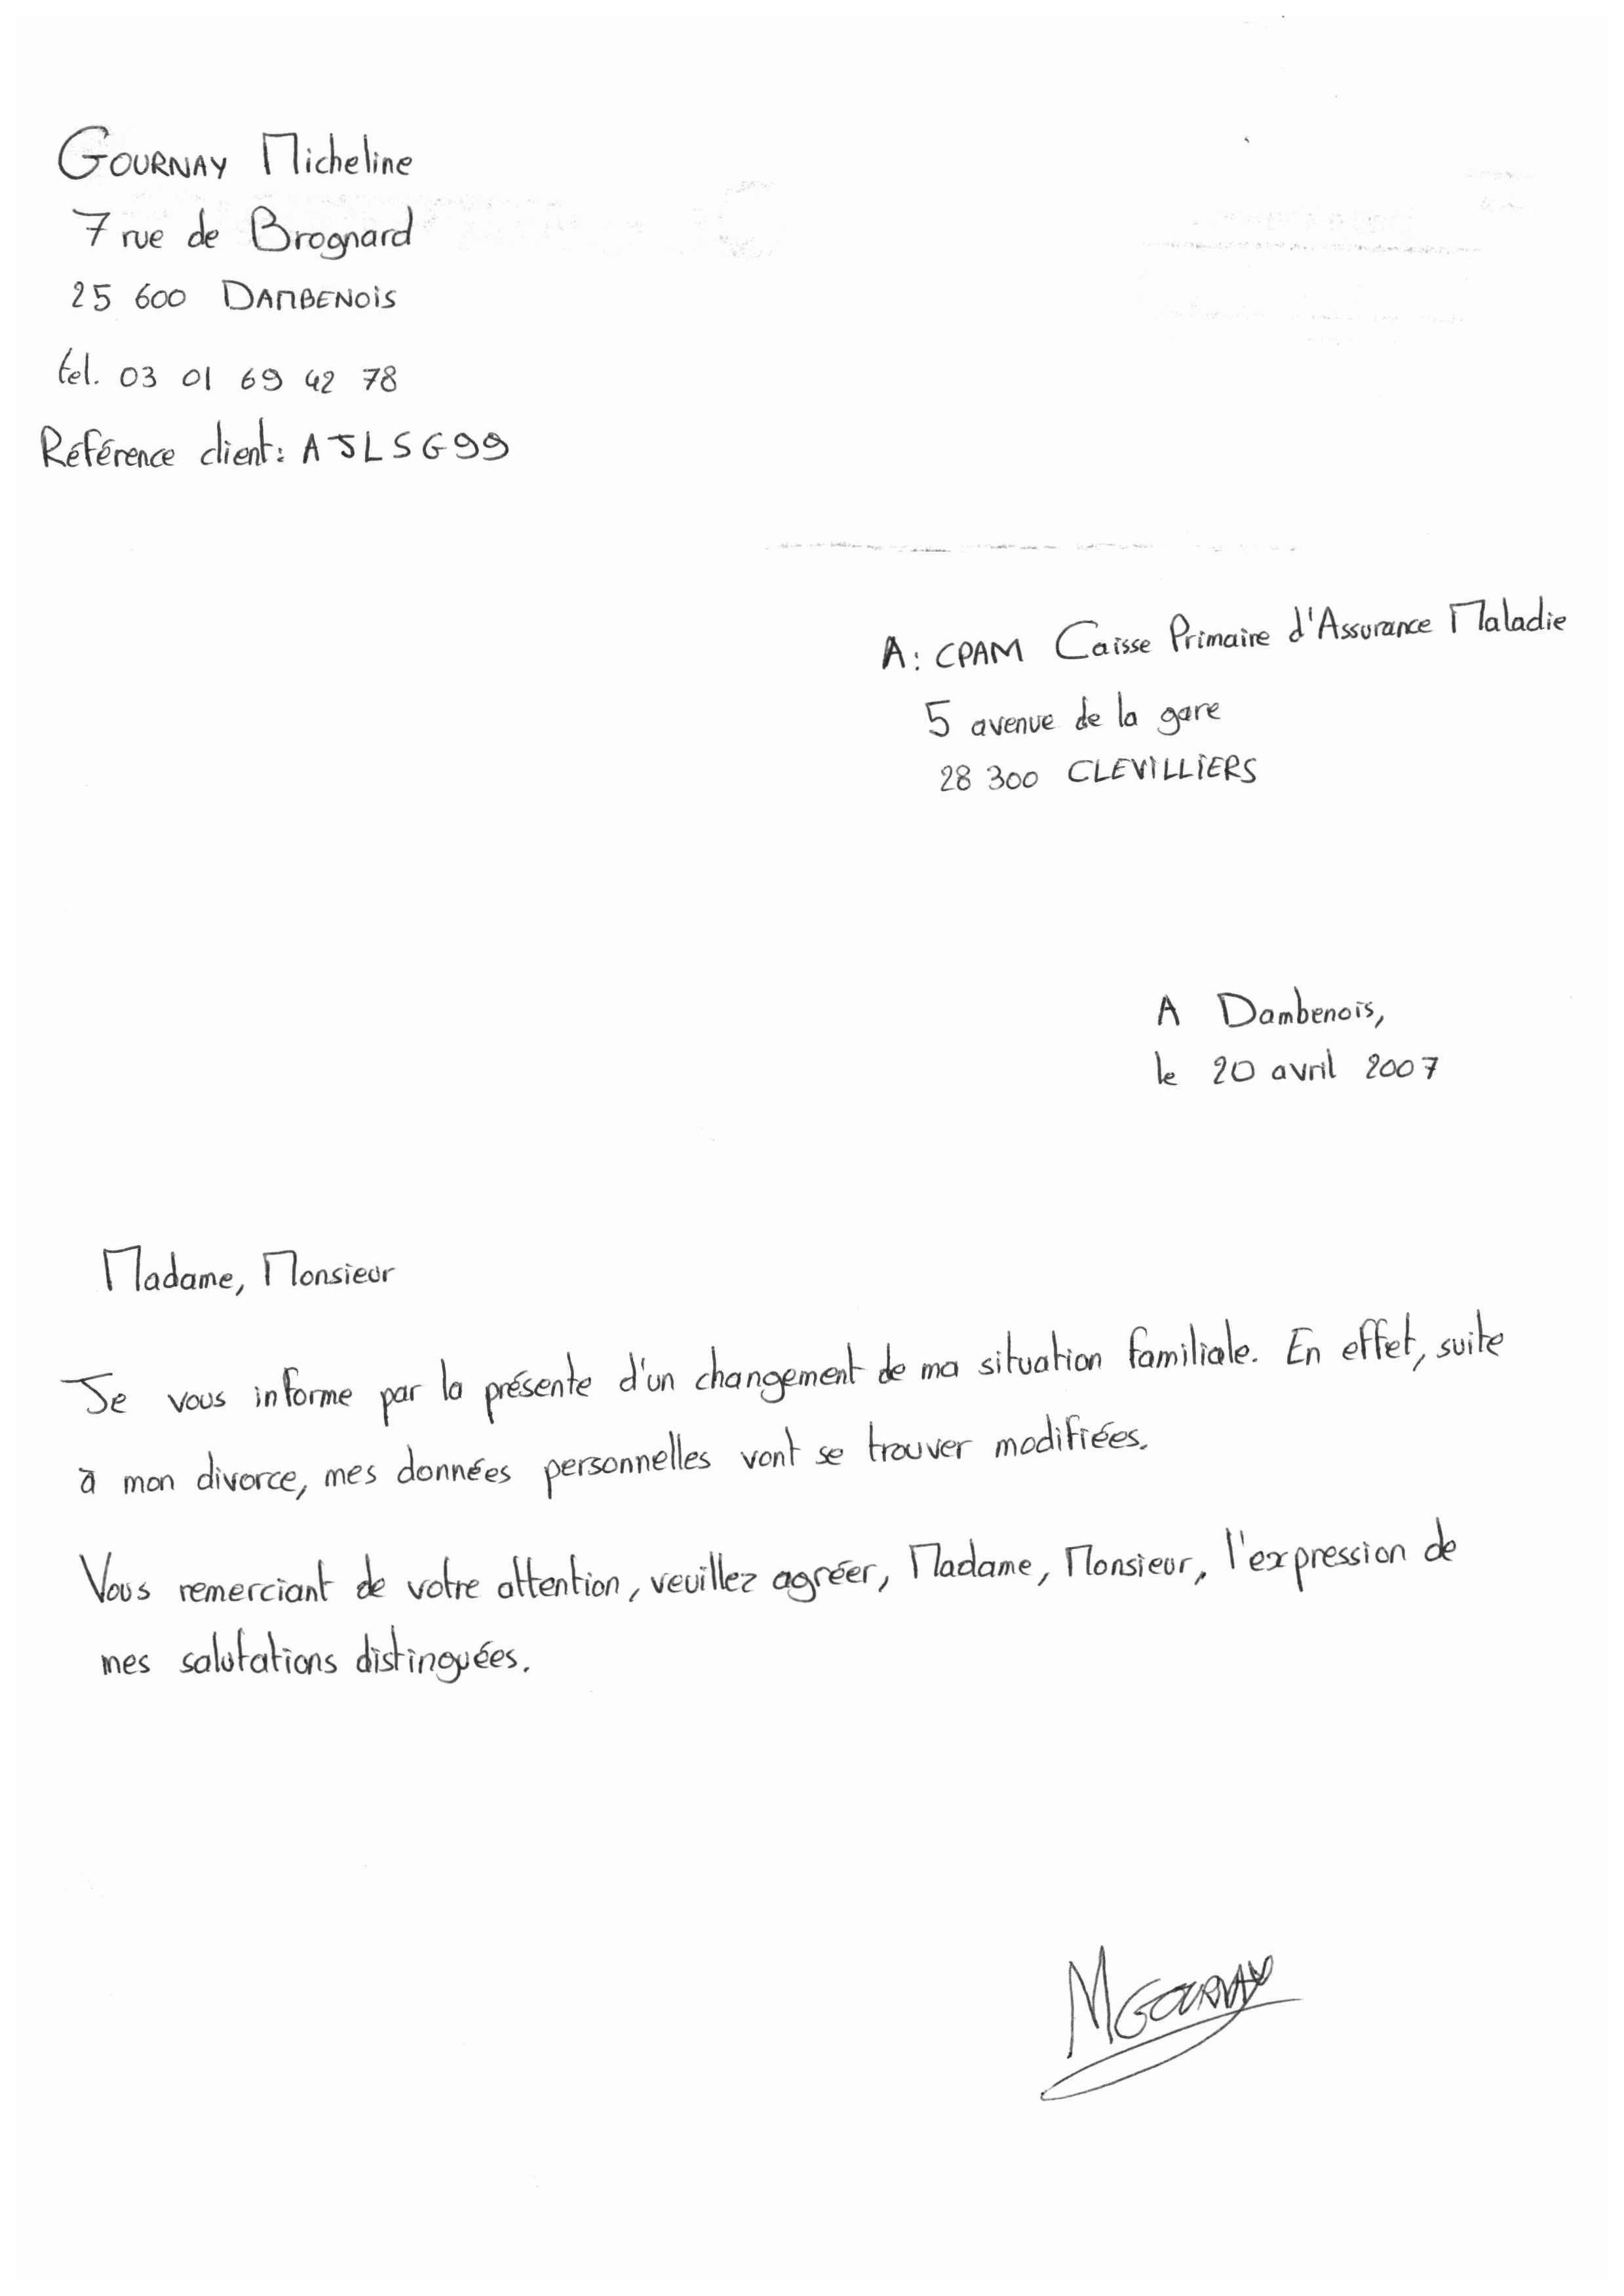 GOURNAY Micheline
7 rue de Brognard
25 600 DAMBENOIS
tel. 03 01 69 42 78
Référence client: AJLSG99
A: CPAM Caisse Primaire d'Assurance Maladie
5 avenue de la gare
28 300 CLEVILLIERS
A Dambenois,
le 20 avril 2007
Madame, Monsieur
Je vous informe par la présente d'un changement de ma situation familiale. En effet, suite
à mon divorce, mes données personnelles vont se trouver modifiées.
Vous remerciant de votre attention, veuillez agréer, Madame, Monsieur, l'expression de
mes salutations distinguées.
MGOURNAY